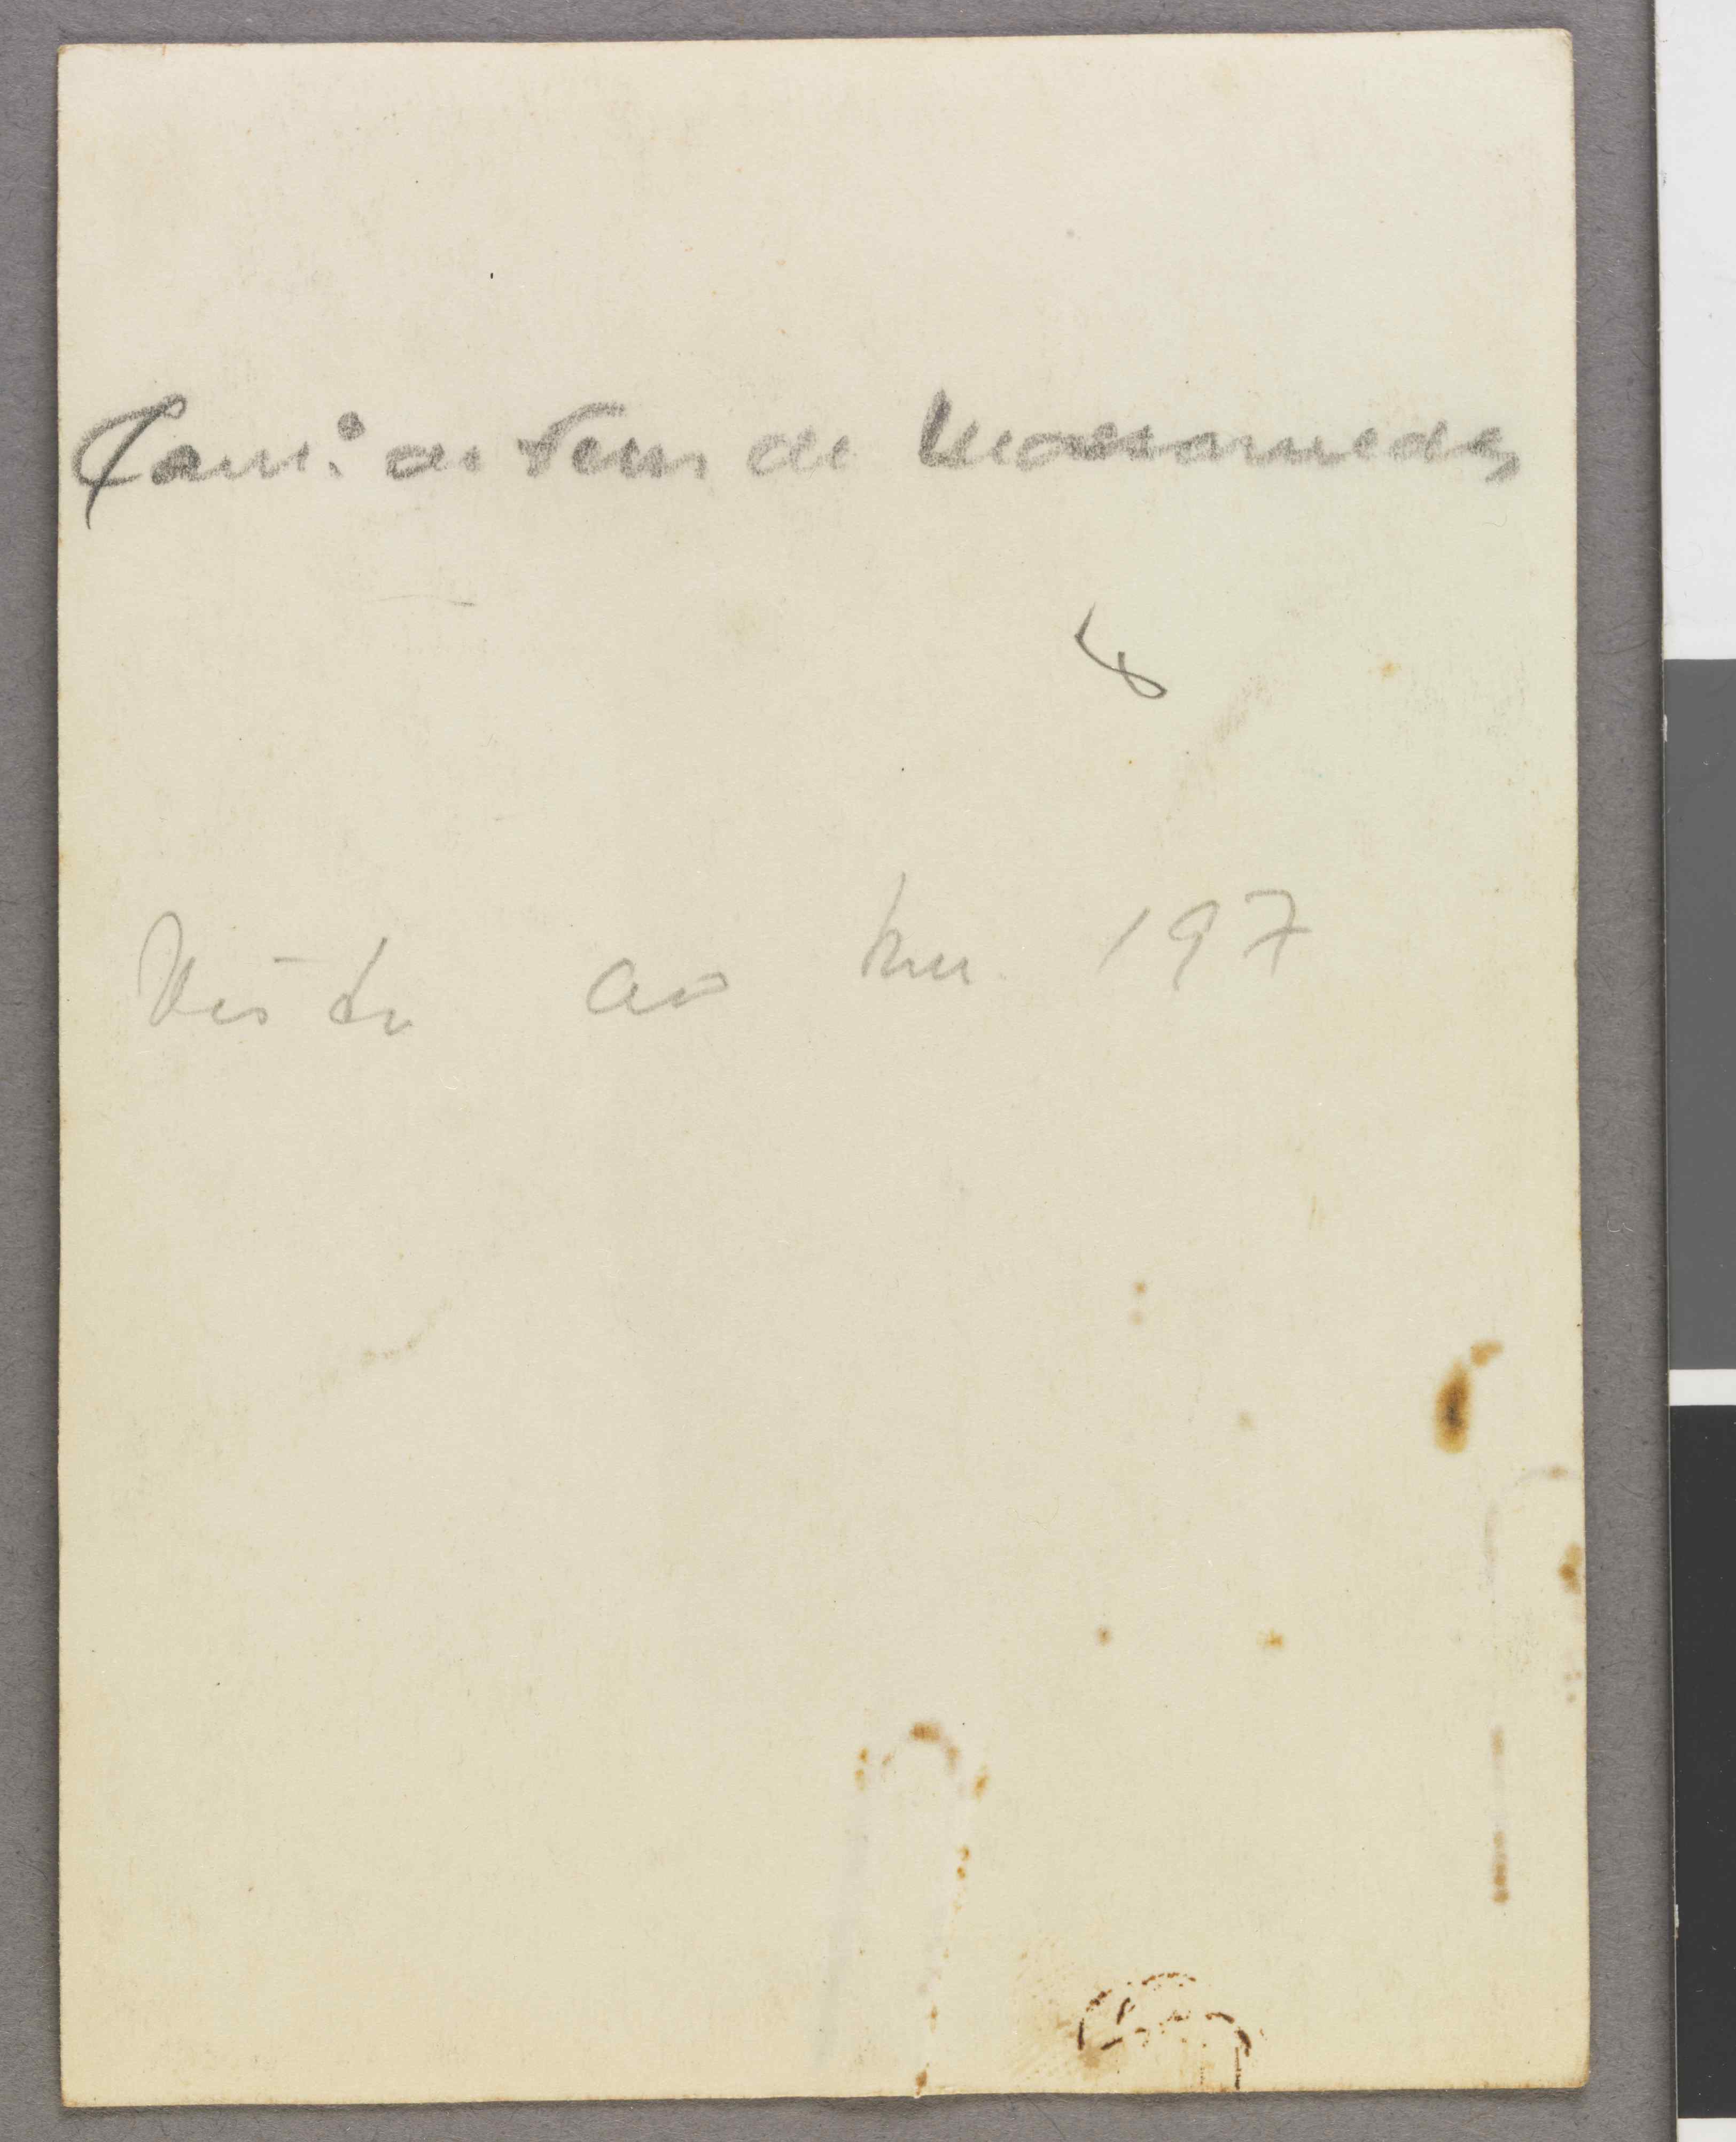 Cam.º de Ferro de Mossamedes
8
Visto ao km 197